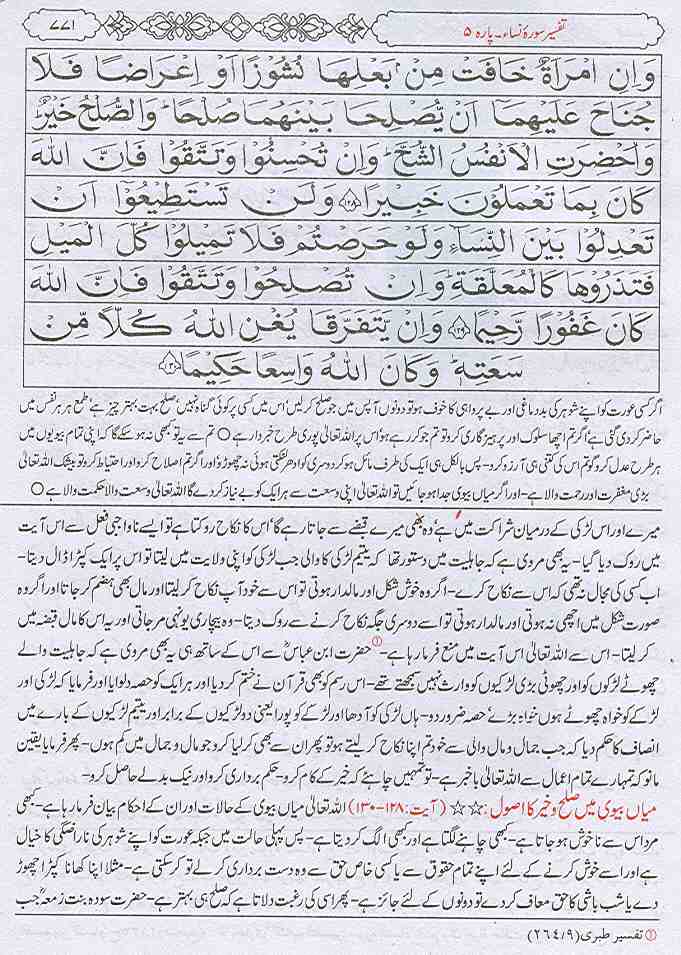 تفسیر سورۂ نساء۔ پارہ ۵
۷۷۱
وَاِنِ امْرَاَةٌ خَافَتْ مِنْۢ بَعْلِهَا نُشُوْزًا اَوْ اِعْرَاضًا فَلَا
جُنَاحَ عَلَيْهِمَاۤ اَنْ يُّصْلِحَا بَيْنَهُمَا صُلْحًا ؕ وَالصُّلْحُ خَيْرٌ ؕ
وَاُحْضِرَتِ الْاَنْفُسُ الشُّحَّ ؕ وَاِنْ تُحْسِنُوْا وَتَتَّقُوْا فَاِنَّ اللّٰهَ
كَانَ بِمَا تَعْمَلُوْنَ خَبِيْرًا ﴿۱۲۸﴾ وَلَنْ تَسْتَطِيْعُوْۤا اَنْ
تَعْدِلُوْا بَيْنَ النِّسَآءِ وَلَوْ حَرَصْتُمْ فَلَا تَمِيْلُوْا كُلَّ الْمَيْلِ
فَتَذَرُوْهَا كَالْمُعَلَّقَةِ ؕ وَاِنْ تُصْلِحُوْا وَتَتَّقُوْا فَاِنَّ اللّٰهَ
كَانَ غَفُوْرًا رَّحِيْمًا ﴿۱۲۹﴾ وَاِنْ يَّتَفَرَّقَا يُغْنِ اللّٰهُ كُلًّا مِّنْ
سَعَتِهٖ ؕ وَكَانَ اللّٰهُ وَاسِعًا حَكِيْمًا ﴿۱۳۰﴾
اگر کسی عورت کو اپنے شوہر کی بددماغی اور بے پرواہی کا خوف ہو تو دونوں آپس میں جو صلح کر لیں' اس میں کسی پر کوئی گناہ نہیں' صلح بہت بہتر چیز ہے' طمع ہر ہر نفس میں
حاضر کر دی گئی ہے' اگر تم اچھا سلوک اور پرہیز گاری کرو تو تم جو کر رہے ہو' اس پر اللہ تعالیٰ پوری طرح خبردار ہے ○ تم سے یہ تو کبھی نہ ہو سکے گا کہ اپنی تمام بیویوں میں
ہر طرح عدل کرو گو تم اس کی کتنی ہی آرزو کرو۔ پس بالکل ہی ایک کی طرف مائل ہو کر دوسری کو ادھر لٹکتی ہوئی نہ چھوڑو اور اگر تم اصلاح کرو اور احتیاط کرو تو بیشک اللہ تعالیٰ
بڑی مغفرت اور رحمت والا ہے۔ اور اگر میاں بیوی جدا ہو جائیں تو اللہ تعالیٰ اپنی وسعت سے ہر ایک کو بے نیاز کر دے گا اللہ تعالیٰ وسعت والا حکمت والا ہے ○
میرے اور اس لڑکی کے درمیان شراکت میں ہے' وہ بھی میرے قبضے سے جاتا رہے گا' اس کا نکاح روکتا ہے تو ایسے ناواجبی فعل سے اس آیت
میں روک دیا گیا۔ یہ بھی مروی ہے کہ جاہلیت میں دستور تھا کہ یتیم لڑکی کا والی جب لڑکی کو اپنی ولایت میں لیتا تو اس پر ایک کپڑا ڈال دیتا۔
اب کسی کی مجال نہ تھی کہ اس سے نکاح کرے۔ اگر وہ خوش شکل اور مالدار ہوتی تو اس سے خود آپ نکاح کر لیتا اور مال بھی ہضم کر جاتا اور اگر وہ
صورت شکل میں اچھی نہ ہوتی اور مالدار ہوتی تو اسے دوسری جگہ نکاح کرنے سے روک دیتا۔ وہ بیچاری یونہی مر جاتی اور یہ اس کا مال قبضہ میں
کر لیتا۔ اس سے اللہ تعالیٰ اس آیت میں منع فرما رہا ہے۔① حضرت ابن عباسؓ سے اس کے ساتھ ہی یہ بھی مروی ہے کہ جاہلیت والے
چھوٹے لڑکوں کو اور چھوٹی بڑی لڑکیوں کو وارث نہیں سمجھتے تھے۔ اس رسم کو بھی قرآن نے ختم کر دیا اور ہر ایک کو حصہ دلوایا اور فرمایا کہ لڑکی اور
لڑکے کو خواہ چھوٹے ہوں خواہ بڑے' حصہ ضرور دو۔ ہاں لڑکی کو آدھا اور لڑکے کو پورا یعنی دو لڑکیوں کے برابر اور یتیم لڑکیوں کے بارے میں
انصاف کا حکم دیا کہ جب جمال و مال والی سے خود تم اپنا نکاح کر لیتے ہو تو پھر ان سے بھی کر لیا کرو جو مال و جمال میں کم ہوں۔ پھر فرمایا یقین
مانو کہ تمہارے تمام اعمال سے اللہ تعالیٰ باخبر ہے۔ تو تمہیں چاہئے کہ خیر کے کام کرو۔ حکم برداری کرو اور نیک بدلے حاصل کرو۔
میاں بیوی میں صلح و خیر کا اصول : ☆☆ (آیت: ۱۲۸-۱۳۰) اللہ تعالیٰ میاں بیوی کے حالات اور ان کے احکام بیان فرما رہا ہے۔ کبھی
مرد اس سے ناخوش ہو جاتا ہے۔ کبھی چاہنے لگتا ہے اور کبھی الگ کر دیتا ہے۔ پس پہلی حالت میں جبکہ عورت کو اپنے شوہر کی ناراضگی کا خیال
ہے اور اسے خوش کرنے کے لئے اپنے تمام حقوق سے یا کسی خاص حق سے وہ دست برداری کر لے تو کر سکتی ہے۔ مثلا اپنا کھانا کپڑا چھوڑ
دے یا شب باشی کا حق معاف کر دے تو دونوں کے لئے جائز ہے۔ پھر اسی کی رغبت دلاتا ہے کہ صلح ہی بہتر ہے۔ حضرت سودہ بنت زمعہؓ جب
① تفسیر طبری (۲۶۴/۹)